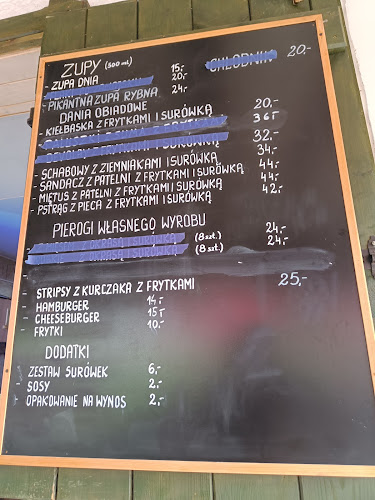 ZUPY (500 ml) CHŁODNIK 20.-
- ZUPA DNIA 15.-
20.-
- PIKANTNA ZUPA RYBNA 24.-
DANIA OBIADOWE
- KIEŁBASKA Z FRYTKAMI I SURÓWKĄ 20.-
36
32.-
- SCHABOWY Z ZIEMNIAKAMI I SURÓWKĄ 34.-
- SANDACZ Z PATELNI Z FRYTKAMI I SURÓWKĄ 44.-
- MIĘTUS Z PATELNI Z FRYTKAMI I SURÓWKĄ 44.-
- PSTRĄG Z PIECA Z FRYTKAMI I SURÓWKĄ 42.-
PIEROGI WŁASNEGO WYROBU
(8 szt.) 24.-
(8 szt.) 24.-
- STRIPSY Z KURCZAKA Z FRYTKAMI 25.-
- HAMBURGER 14.-
- CHEESEBURGER 15
- FRYTKI 10.-
DODATKI
- ZESTAW SURÓWEK 6.-
- SOSY 2.-
- OPAKOWANIE NA WYNOS 2.-